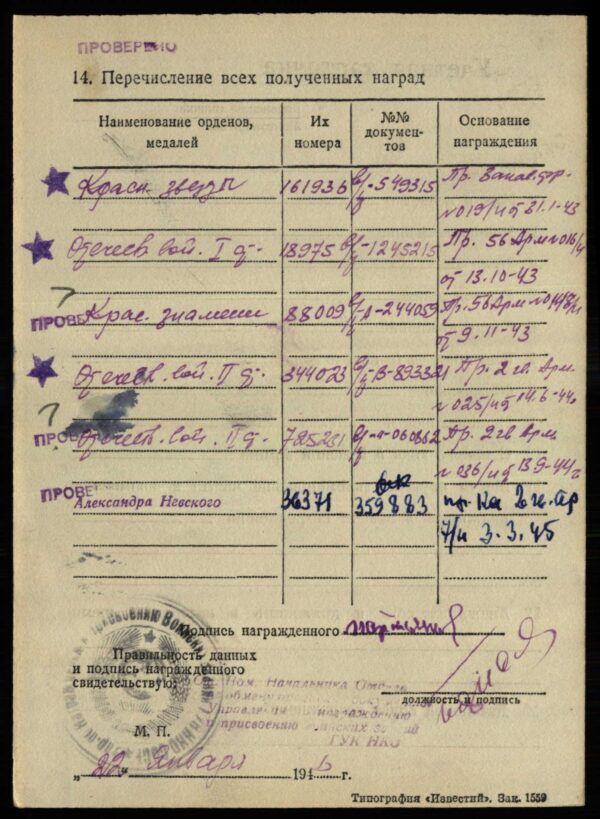 ПРОВЕРЕНО
14. Перечисление всех полученных наград
Наименование орденов, медалей
Их номера
№№ документов
Основание награждения
Красн. звезды 161936 549315 Пр.
№019/н от 31.1-43
Отечеств. вой. I ст. 18975 1245215 Пр. 56 Арм №016/н
от 13.10-43
ПРОВЕ Крас. знамени 88009 А-244059 Пр. 56 Арм
от 9.11-43
Отечеств. вой. II ст. 344023 В-893321 Пр. 2 гв. Арм.
№025/н от 14.6-44г
ПРОВ Отечеств. вой. II ст. 785281 А-060862 Пр. 2 гв Арм.
№036/н от 13.9-44г
ПРОВЕ
Александра Невского 36371 359883 пр. Ка 2 гв. Ар
7/н 3.3.45
Подпись награжденного
Правильность данных
и подпись награжденного
свидетельствую:
Пом. Начальника Отдела
Управления награждению
и присвоению воинских званий
ГУК НКО
должность и подпись
М. П.
„22“ Января 1946 г.
Типография «Известий». Зак. 1559